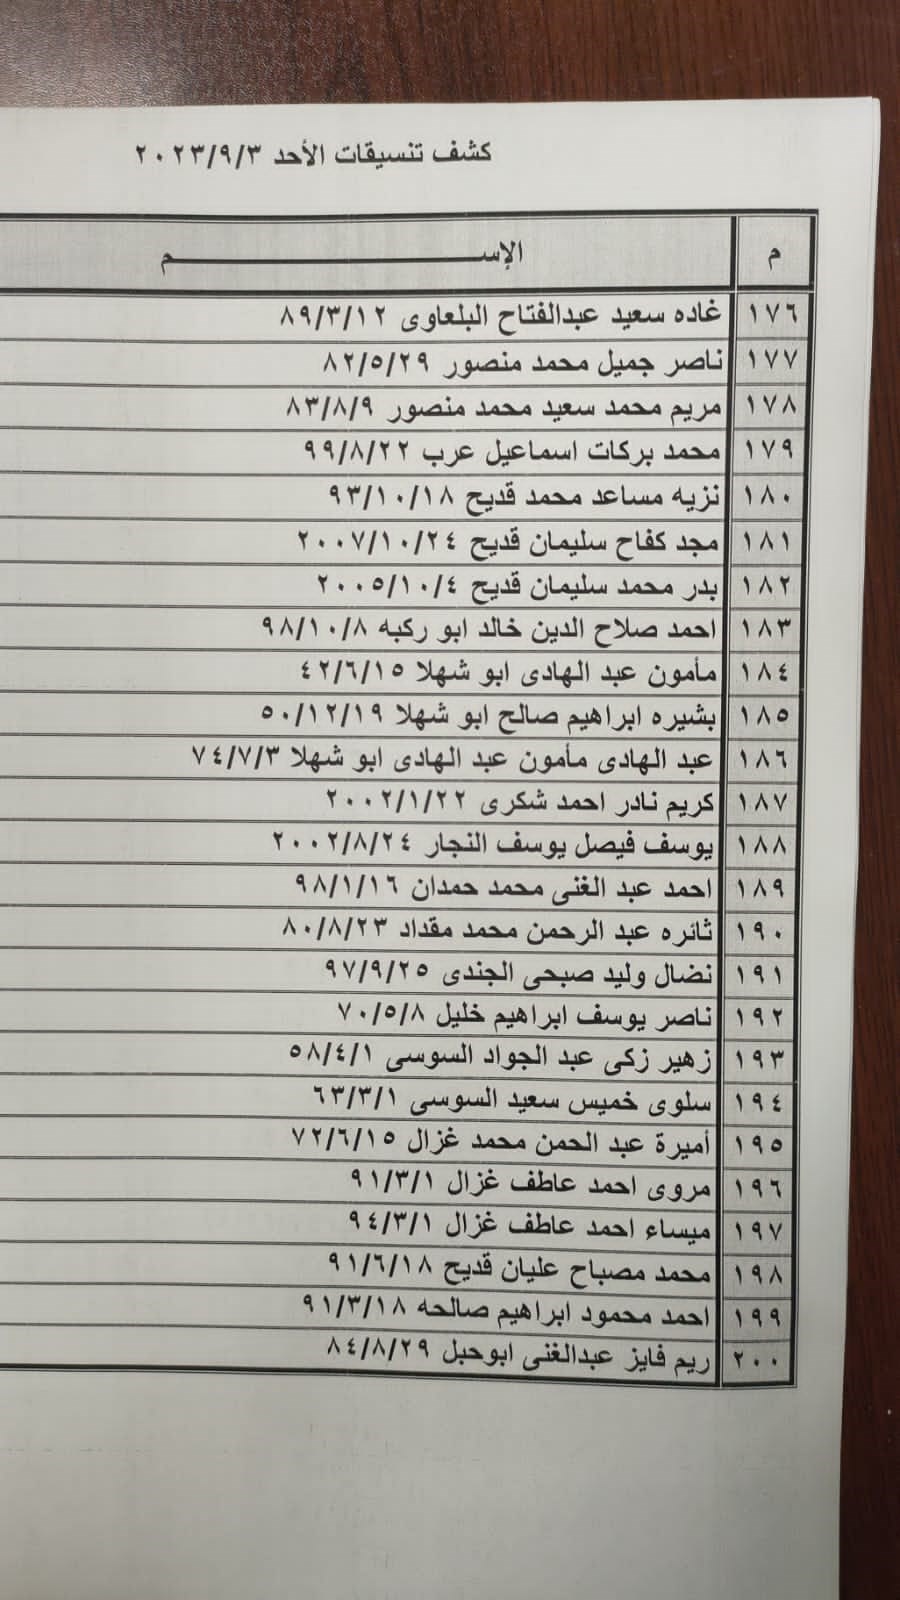 كشف تنسيقات الأحد ٢٠٢٣/٩/٣
م الإســـــــــــــــم
١٧٦ غاده سعيد عبدالفتاح البلعاوى ٨٩/٣/١٢
١٧٧ ناصر جميل محمد منصور ٨٢/٥/٢٩
١٧٨ مريم محمد سعيد محمد منصور ٨٣/٨/٩
١٧٩ محمد بركات اسماعيل عرب ٩٩/٨/٢٢
١٨٠ نزيه مساعد محمد قديح ٩٣/١٠/١٨
١٨١ مجد كفاح سليمان قديح ٢٠٠٧/١٠/٢٤
١٨٢ بدر محمد سليمان قديح ٢٠٠٥/١٠/٤
١٨٣ احمد صلاح الدين خالد ابو ركبه ٩٨/١٠/٨
١٨٤ مأمون عبد الهادى ابو شهلا ٤٢/٦/١٥
١٨٥ بشيره ابراهيم صالح ابو شهلا ٥٠/١٢/١٩
١٨٦ عبد الهادى مأمون عبد الهادى ابو شهلا ٧٤/٧/٣
١٨٧ كريم نادر احمد شكرى ٢٠٠٢/١/٢٢
١٨٨ يوسف فيصل يوسف النجار ٢٠٠٢/٨/٢٤
١٨٩ احمد عبد الغنى محمد حمدان ٩٨/١/١٦
١٩٠ ثائره عبد الرحمن محمد مقداد ٨٠/٨/٢٣
١٩١ نضال وليد صبحى الجندى ٩٧/٩/٢٥
١٩٢ ناصر يوسف ابراهيم خليل ٧٠/٥/٨
١٩٣ زهير زكى عبد الجواد السوسى ٥٨/٤/١
١٩٤ سلوى خميس سعيد السوسى ٦٣/٣/١
١٩٥ أميرة عبد الحمن محمد غزال ٧٢/٦/١٥
١٩٦ مروى احمد عاطف غزال ٩١/٣/١
١٩٧ ميساء احمد عاطف غزال ٩٤/٣/١
١٩٨ محمد مصباح عليان قديح ٩١/٦/١٨
١٩٩ احمد محمود ابراهيم صالحه ٩١/٣/١٨
٢٠٠ ريم فايز عبدالغنى ابوحبل ٨٤/٨/٢٩